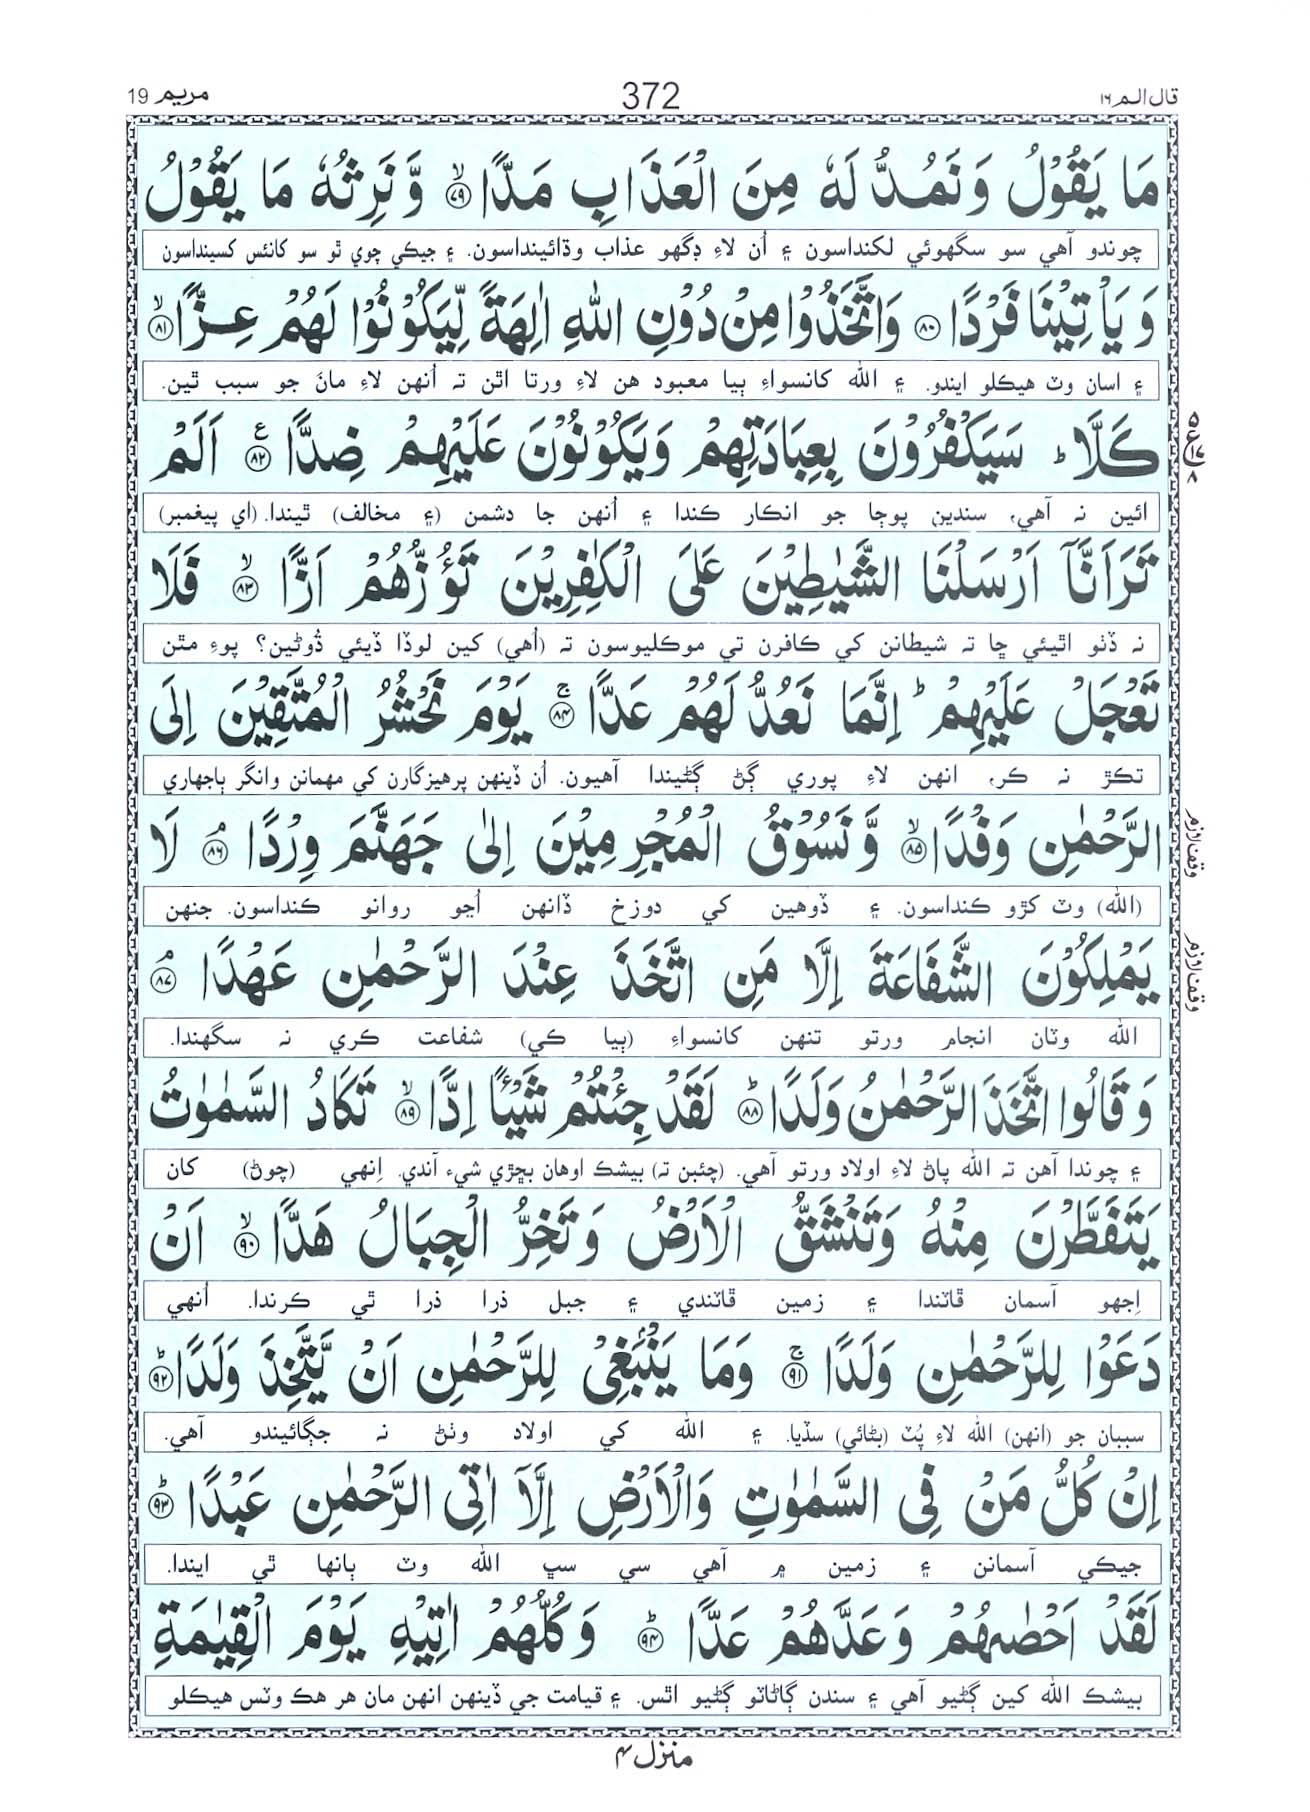 قال الم ١٦ 372 مريم 19
مَا يَقُوْلُ وَنَمُدُّ لَهٗ مِنَ الْعَذَابِ مَدًّا ۙ﴿٧٩﴾ وَّنَرِثُهٗ مَا يَقُوْلُ
چوندو آهي سو سگهوئي لکنداسون ۽ اُن لاءِ ڊگهو عذاب وڌائينداسون. ۽ جيڪي چوي ٿو سو کانئس کسينداسون
وَيَاْتِيْنَا فَرْدًا ﴿٨٠﴾ وَاتَّخَذُوْا مِنْ دُوْنِ اللّٰهِ اٰلِهَةً لِّيَكُوْنُوْا لَهُمْ عِزًّا ۙ﴿٨١﴾
۽ اسان وٽ هيڪلو ايندو. ۽ الله کانسواءِ ٻيا معبود هن لاءِ ورتا اٿن تہ اُنهن لاءِ مانَ جو سبب ٿين.
كَلَّا ؕ سَيَكْفُرُوْنَ بِعِبَادَتِهِمْ وَيَكُوْنُوْنَ عَلَيْهِمْ ضِدًّا ﴿٨٢﴾ ع اَلَمْ
ائين نہ آهي، سندين پوڄا جو انڪار ڪندا ۽ اُنهن جا دشمن (۽ مخالف) ٿيندا. (اي پيغمبر)
تَرَ اَنَّاۤ اَرْسَلْنَا الشَّيٰطِيْنَ عَلَى الْكٰفِرِيْنَ تَؤُزُّهُمْ اَزًّا ۙ﴿٨٣﴾ فَلَا
نہ ڏٺو اٿيئي ڇا تہ شيطانن کي ڪافرن تي موڪليوسون تہ (اُهي) کين لوڏا ڏيئي ڌُوڻين؟ پوءِ مٿن
تَعْجَلْ عَلَيْهِمْ ؕ اِنَّمَا نَعُدُّ لَهُمْ عَدًّا ۚ﴿٨٤﴾ يَوْمَ نَحْشُرُ الْمُتَّقِيْنَ اِلَى
تڪڙ نہ ڪر، انهن لاءِ پوري ڳڻ ڳڻيندا آهيون. اُن ڏينهن پرهيزگارن کي مهمانن وانگر ٻاجهاري
الرَّحْمٰنِ وَفْدًا ۙ﴿٨٥﴾ وَّنَسُوْقُ الْمُجْرِمِيْنَ اِلٰى جَهَنَّمَ وِرْدًا ۘ﴿٨٦﴾ لَا
وقف لازم
(الله) وٽ ڪڙو ڪنداسون. ۽ ڏوهين کي دوزخ ڏانهن اُڃو روانو ڪنداسون. جنهن
يَمْلِكُوْنَ الشَّفَاعَةَ اِلَّا مَنِ اتَّخَذَ عِنْدَ الرَّحْمٰنِ عَهْدًا ۘ﴿٨٧﴾
وقف لازم
الله وٽان انجام ورتو تنهن کانسواءِ (ٻيا ڪي) شفاعت ڪري نہ سگهندا.
وَقَالُوا اتَّخَذَ الرَّحْمٰنُ وَلَدًا ؕ﴿٨٨﴾ لَقَدْ جِئْتُمْ شَيْـًٔا اِدًّا ۙ﴿٨٩﴾ تَكَادُ السَّمٰوٰتُ
۽ چوندا آهن تہ الله پاڻ لاءِ اولاد ورتو آهي. (چئبن تہ) بيشڪ اوهان بڇڙي شيء آندي. اِنهي (چوڻ) کان
يَتَفَطَّرْنَ مِنْهُ وَتَنْشَقُّ الْاَرْضُ وَتَخِرُّ الْجِبَالُ هَدًّا ۙ﴿٩٠﴾ اَنْ
اِجهو آسمان ڦاٽندا ۽ زمين ڦاٽندي ۽ جبل ذرا ذرا ٿي ڪرندا. اُنهي
دَعَوْا لِلرَّحْمٰنِ وَلَدًا ۚ﴿٩١﴾ وَمَا يَنْۢبَغِيْ لِلرَّحْمٰنِ اَنْ يَّتَّخِذَ وَلَدًا ؕ﴿٩٢﴾
سببان جو (انهن) الله لاءِ پُٽ (بڻائي) سڏيا. ۽ الله کي اولاد وٺڻ نہ جڳائيندو آهي.
اِنْ كُلُّ مَنْ فِي السَّمٰوٰتِ وَالْاَرْضِ اِلَّاۤ اٰتِي الرَّحْمٰنِ عَبْدًا ؕ﴿٩٣﴾
جيڪي آسمانن ۽ زمين ۾ آهي سي سڀ الله وٽ ٻانها ٿي ايندا.
لَقَدْ اَحْصٰىهُمْ وَعَدَّهُمْ عَدًّا ؕ﴿٩٤﴾ وَكُلُّهُمْ اٰتِيْهِ يَوْمَ الْقِيٰمَةِ
بيشڪ الله کين ڳڻيو آهي ۽ سندن ڳاڻاٽو ڳڻيو اٿس. ۽ قيامت جي ڏينهن انهن مان هر هڪ وٽس هيڪلو
منزل ۴